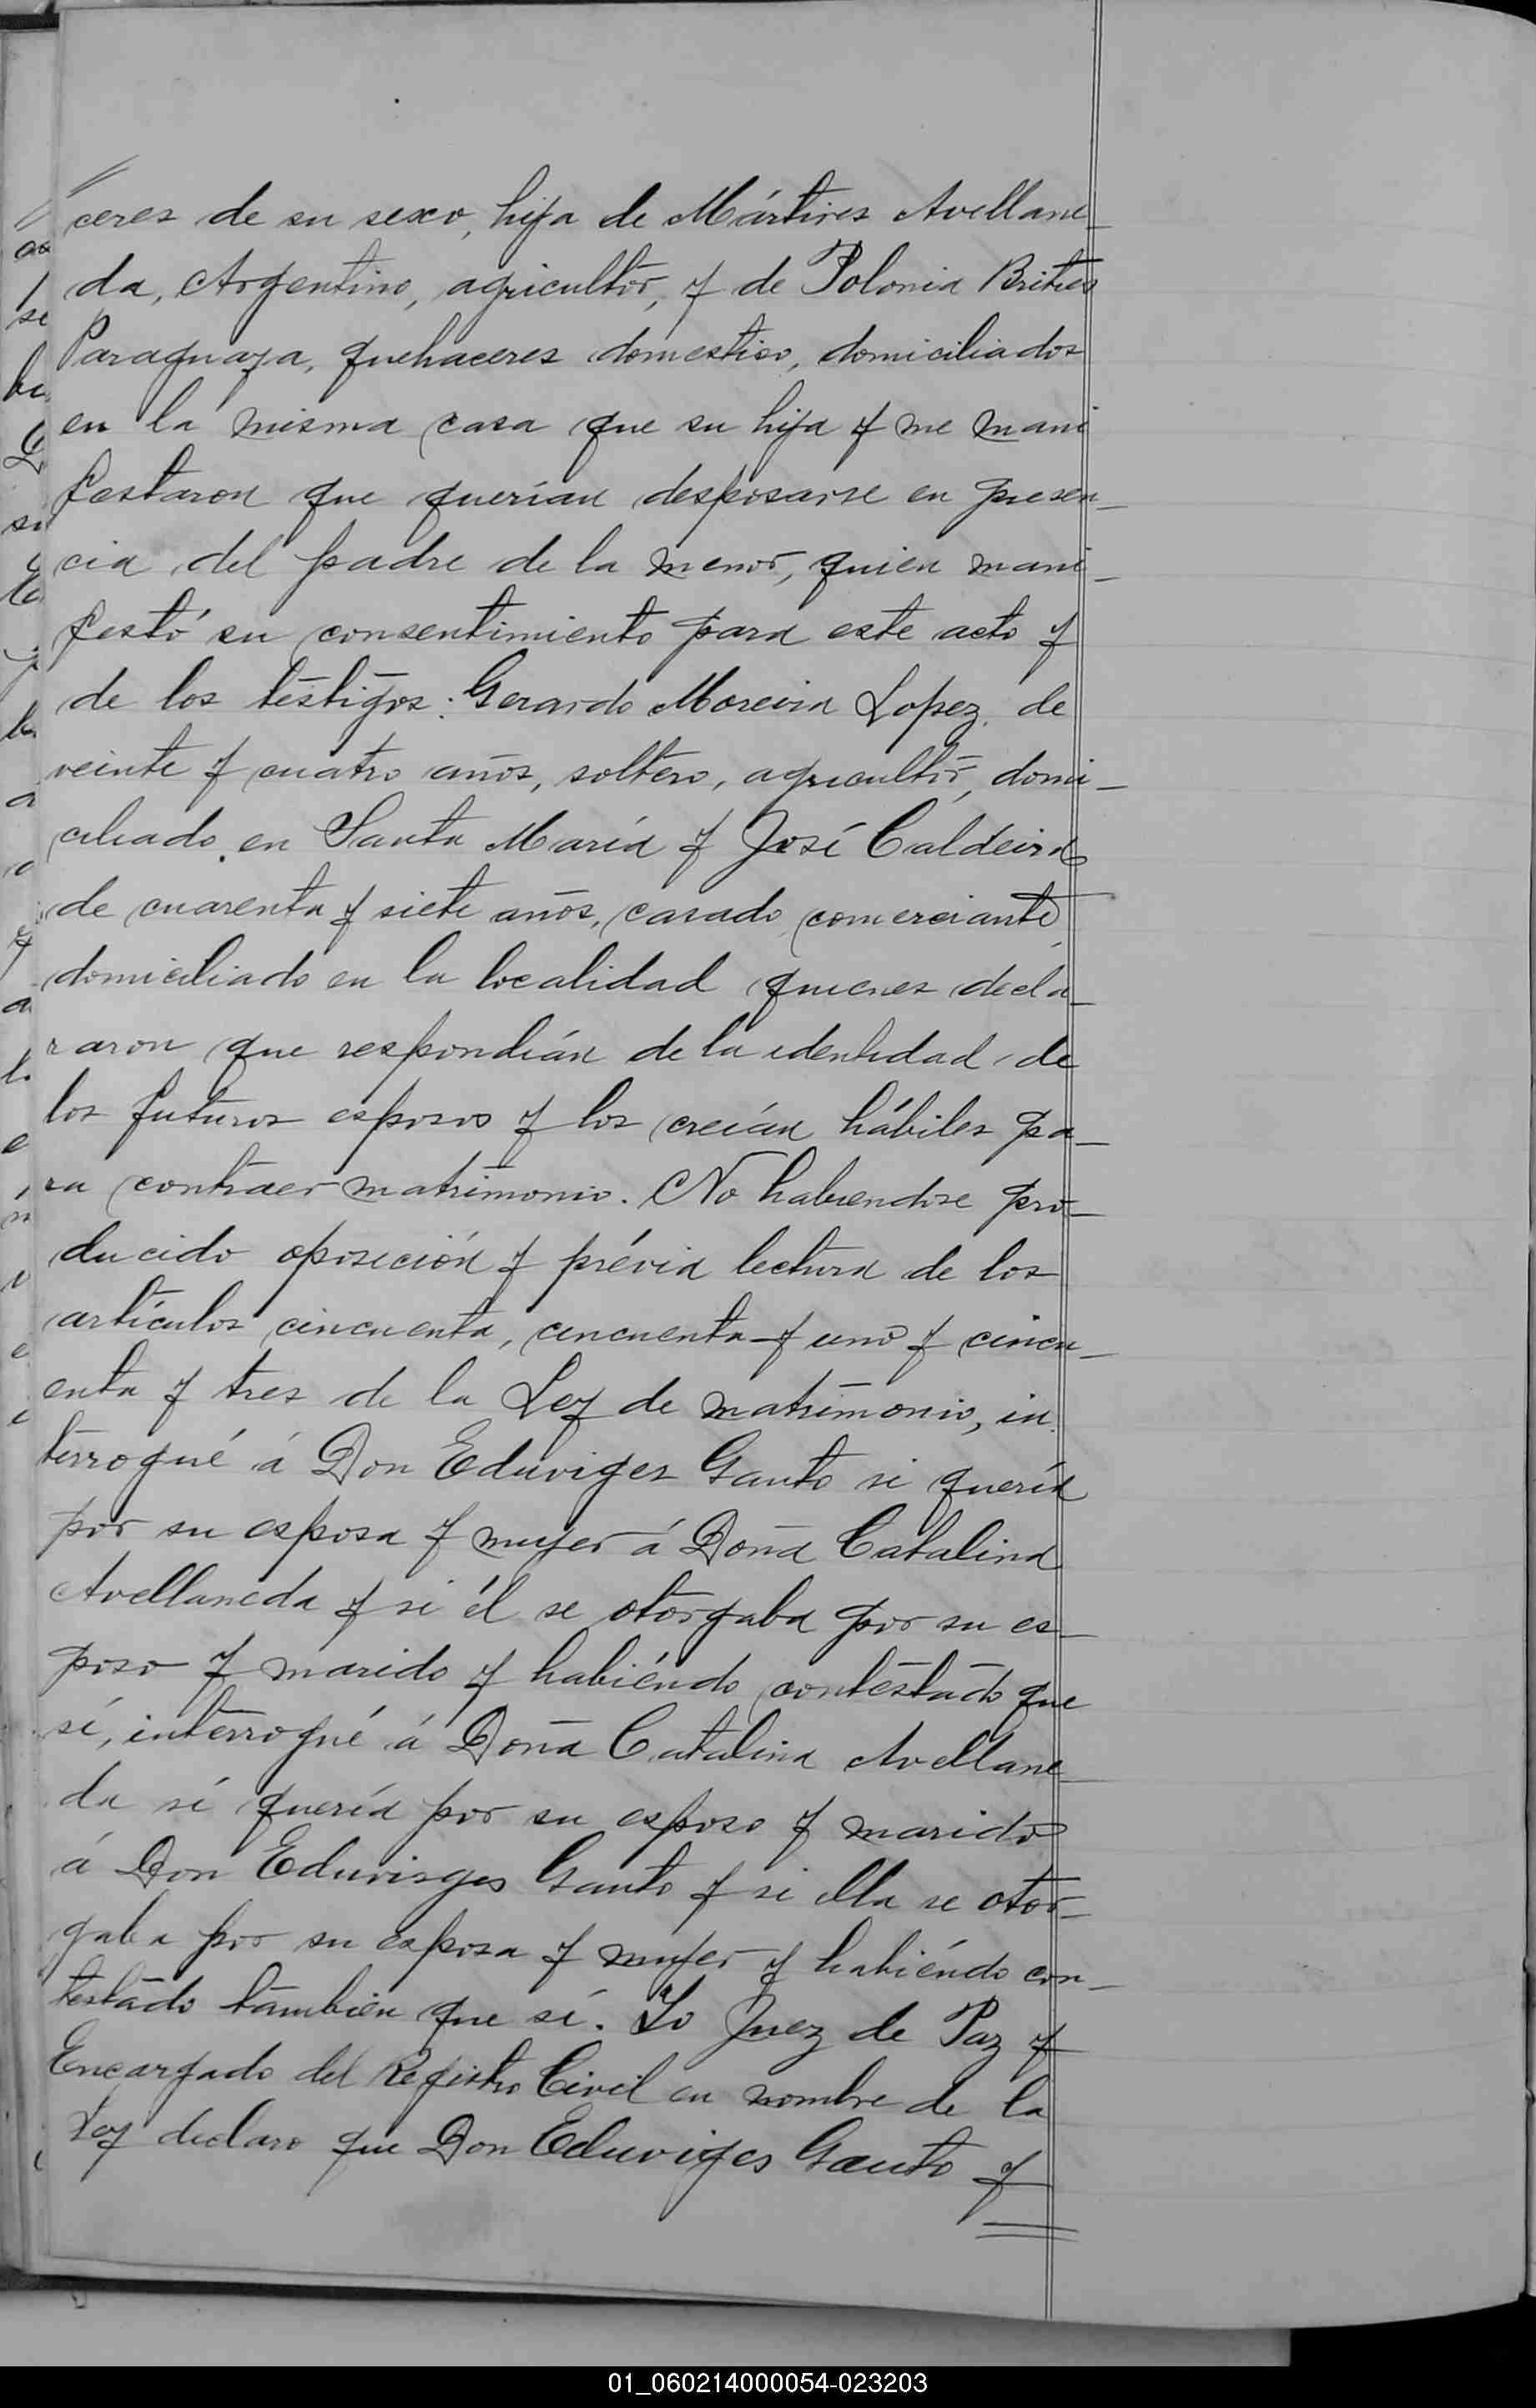 ceres de su sexo, hija de Mártires Avellane
da, Argentino, agricultor, y de Polonia Britez
Paraguaya, quehaceres domestico, domiciliados
en la misma casa que su hija y me mani
festaron que querían desposarse en presen-
cia del padre de la menor, quien mani-
festó su consentimiento para este acto y
de los testigos: Gerardo Moreira Lopez, de
veinte y cuatro años, soltero, agricultor, domi-
ciliado en Santa María y José Caldeira
de cuarenta y siete años, casado, comerciante,
domiciliado en la localidad quienes decla-
raron que respondían de la identidad de
los futuros esposos y los creían hábiles pa-
ra contraer matrimonio. No habiendose pro-
ducido oposición y prévia lectura de los
artículos cincuenta, cincuenta y uno y cincu-
enta y tres de la Ley de matrimonio, in
terrogué á Don Eduviges Gauto si quería
por su esposa y mujer á Doña Catalina
Avellaneda y si él se otorgaba por su es-
poso y marido y habiéndo contestado que
sí, interrogué á Doña Catalina Avellane-
da si quería por su esposo y marido
á Don Eduvisges Gauto y si ella se otor-
gaba por su esposa y mujer y habiéndo con-
testado tambien que sí. Yo Juez de Paz y
Encargado del Registro Civil en nombre de la
Ley declaro que Don Eduviges Gauto y
01_060214000054-023203